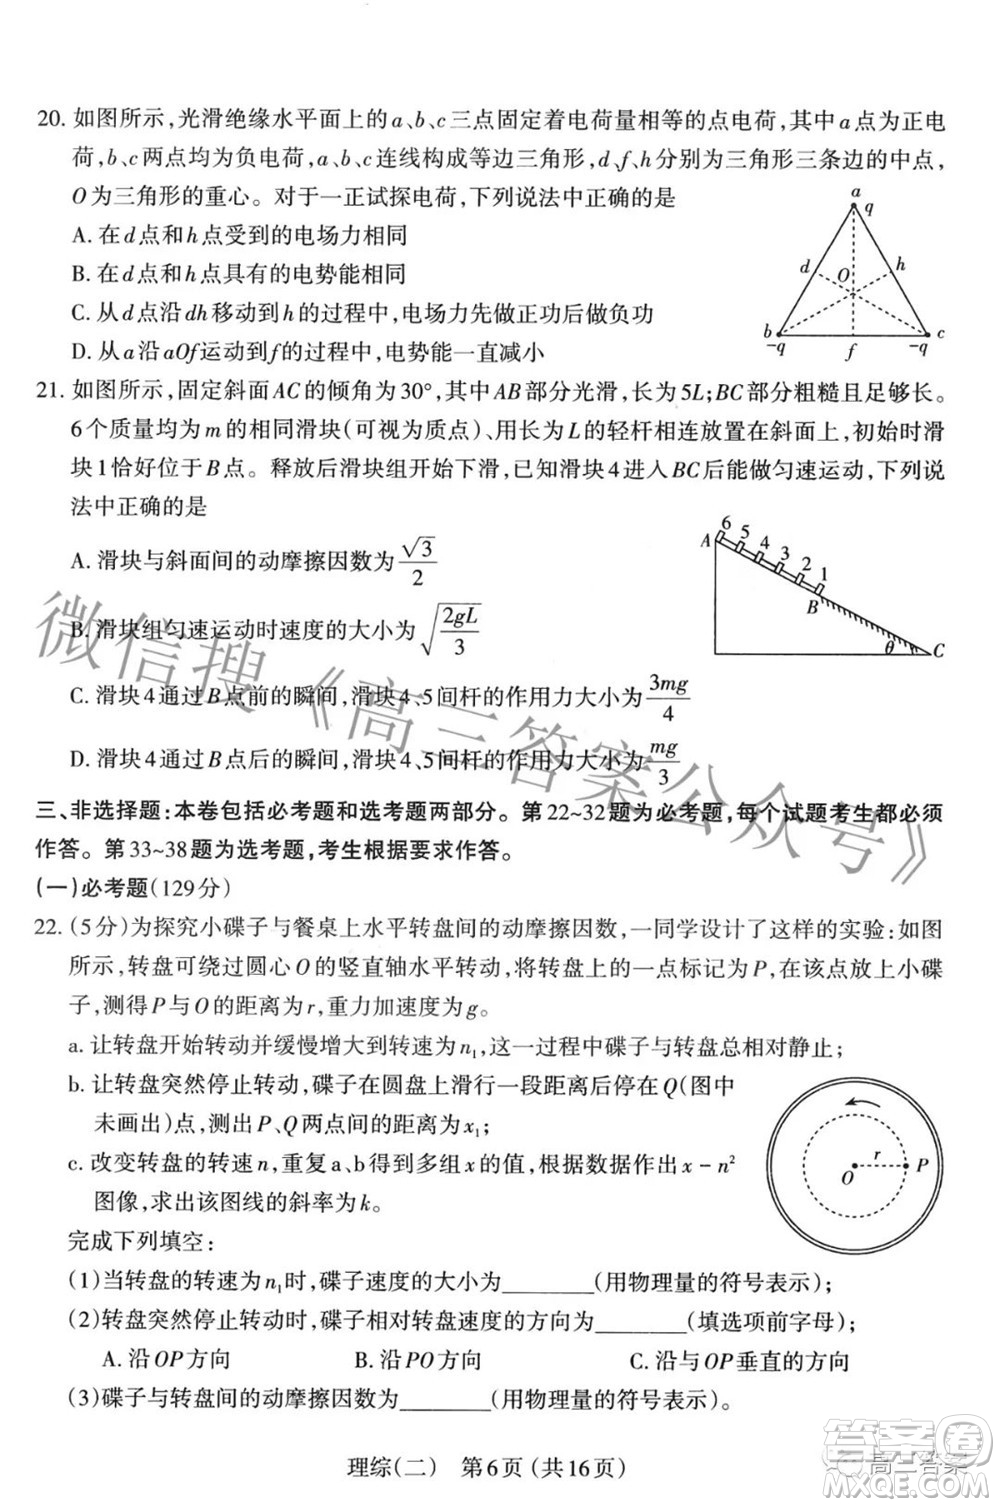 20. 如图所示,光滑绝缘水平面上的a、b、c三点固定着电荷量相等的点电荷,其中a点为正电
荷,b、c两点均为负电荷,a、b、c连线构成等边三角形,d、f、h分别为三角形三条边的中点,
O为三角形的重心。对于一正试探电荷,下列说法中正确的是
A. 在d点和h点受到的电场力相同
B. 在d点和h点具有的电势能相同
C. 从d点沿dh移动到h的过程中,电场力先做正功后做负功
D. 从a沿aOf运动到f的过程中,电势能一直减小
a
q
d
O
h
b
-q
f
c
-q
21. 如图所示,固定斜面AC的倾角为30°,其中AB部分光滑,长为5L;BC部分粗糙且足够长。
6个质量均为m的相同滑块(可视为质点)、用长为L的轻杆相连放置在斜面上,初始时滑
块1恰好位于B点。释放后滑块组开始下滑,已知滑块4进入BC后能做匀速运动,下列说
法中正确的是
A. 滑块与斜面间的动摩擦因数为√3/2
B. 滑块组匀速运动时速度的大小为√(2gL/3)
C. 滑块4通过B点前的瞬间,滑块4、5间杆的作用力大小为3mg/4
D. 滑块4通过B点后的瞬间,滑块4、5间杆的作用力大小为mg/3
A
6
5
4
3
2
1
B
θ
C
三、非选择题:本卷包括必考题和选考题两部分。第22~32题为必考题,每个试题考生都必须
作答。第33~38题为选考题,考生根据要求作答。
(一)必考题(129分)
22. (5分)为探究小碟子与餐桌上水平转盘间的动摩擦因数,一同学设计了这样的实验:如图
所示,转盘可绕过圆心O的竖直轴水平转动,将转盘上的一点标记为P,在该点放上小碟
子,测得P与O的距离为r,重力加速度为g。
a. 让转盘开始转动并缓慢增大到转速为n₁,这一过程中碟子与转盘总相对静止;
b. 让转盘突然停止转动,碟子在圆盘上滑行一段距离后停在Q(图中
未画出)点,测出P、Q两点间的距离为x₁;
c. 改变转盘的转速n,重复a、b得到多组x的值,根据数据作出x－n²
图像,求出该图线的斜率为k。
O
r
P
完成下列填空:
(1)当转盘的转速为n₁时,碟子速度的大小为________(用物理量的符号表示);
(2)转盘突然停止转动时,碟子相对转盘速度的方向为________(填选项前字母);
A. 沿OP方向 B. 沿PO方向 C. 沿与OP垂直的方向
(3)碟子与转盘间的动摩擦因数为________(用物理量的符号表示)。
理综(二) 第6页(共16页)
微信搜《高三答案公众号》
答案圈
高三答案